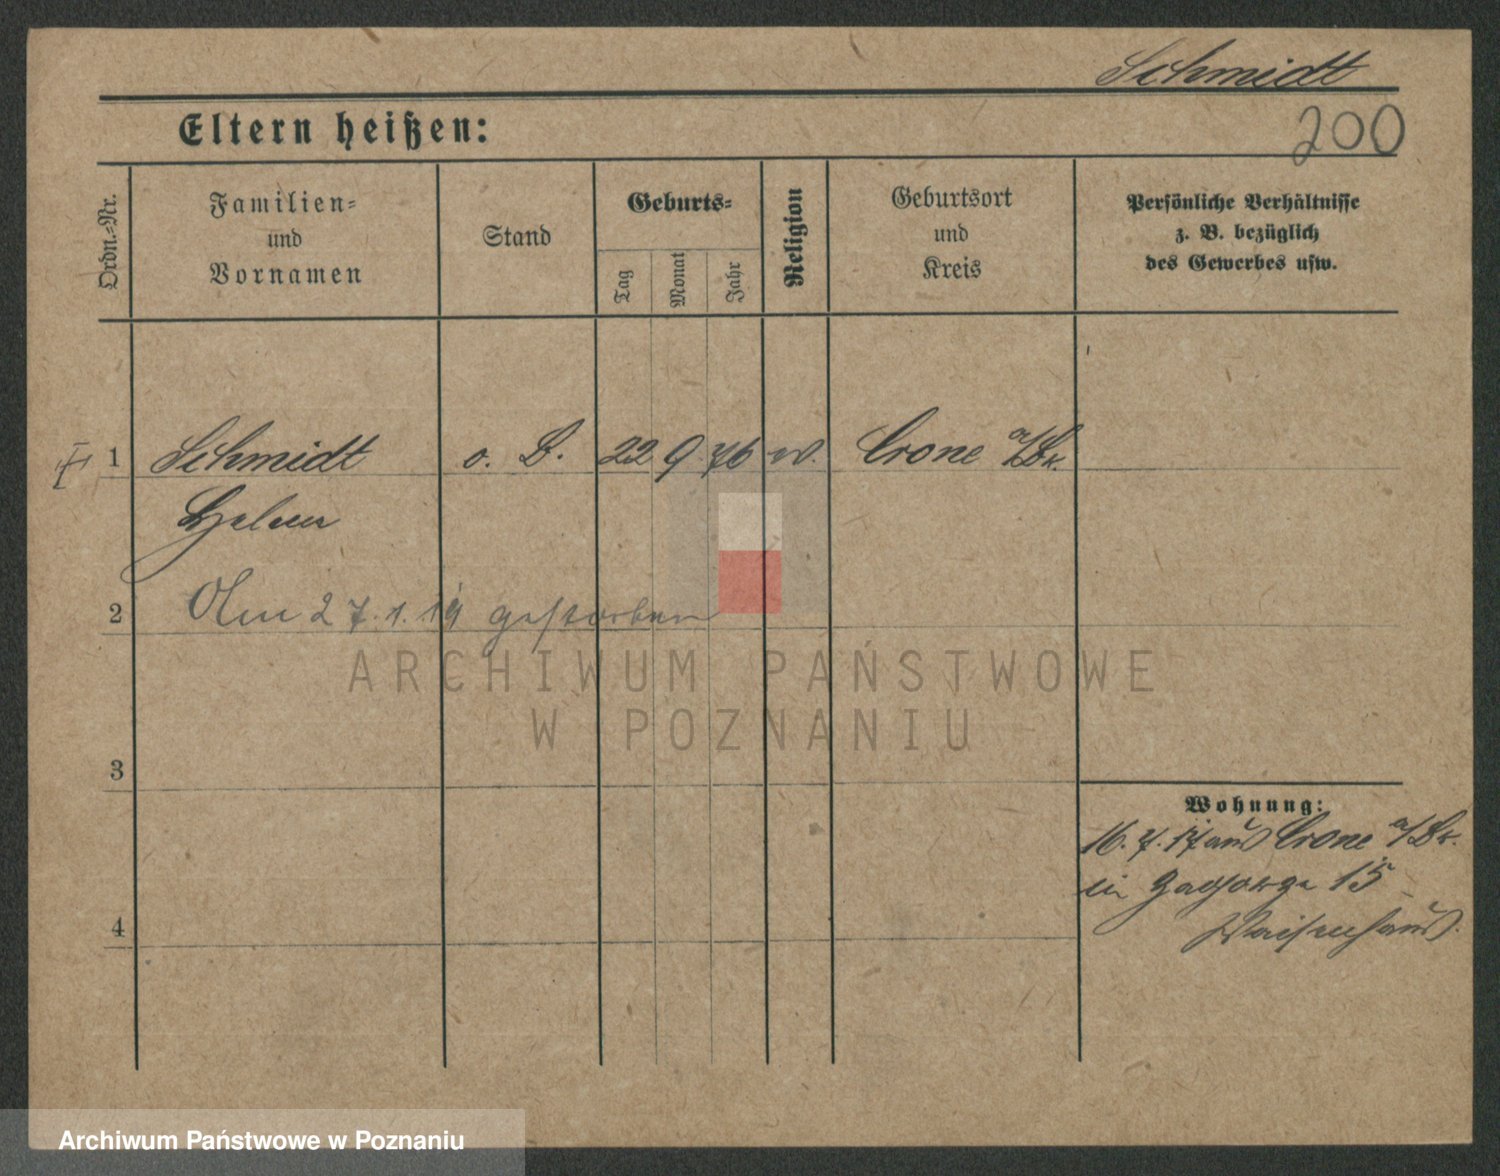 Schmidt
200
Eltern heißen:
Ordn.-Nr.
Familien-
und
Vornamen
Stand
Geburts-
Tag
Monat
Jahr
Religion
Geburtsort
und
Kreis
Persönliche Verhältnisse
z. B. bezüglich
des Gewerbes usw.
1 Schmidt o. B. 22 9 76 w. Crone a/Br.
Helene
2 Am 27.1.19 gestorben
ARCHIWUM PAŃSTWOWE
W POZNANIU
3
Wohnung:
16.7.17 aus Crone a/Br.
in 15
Waisenhaus.
4
Archiwum Państwowe w Poznaniu